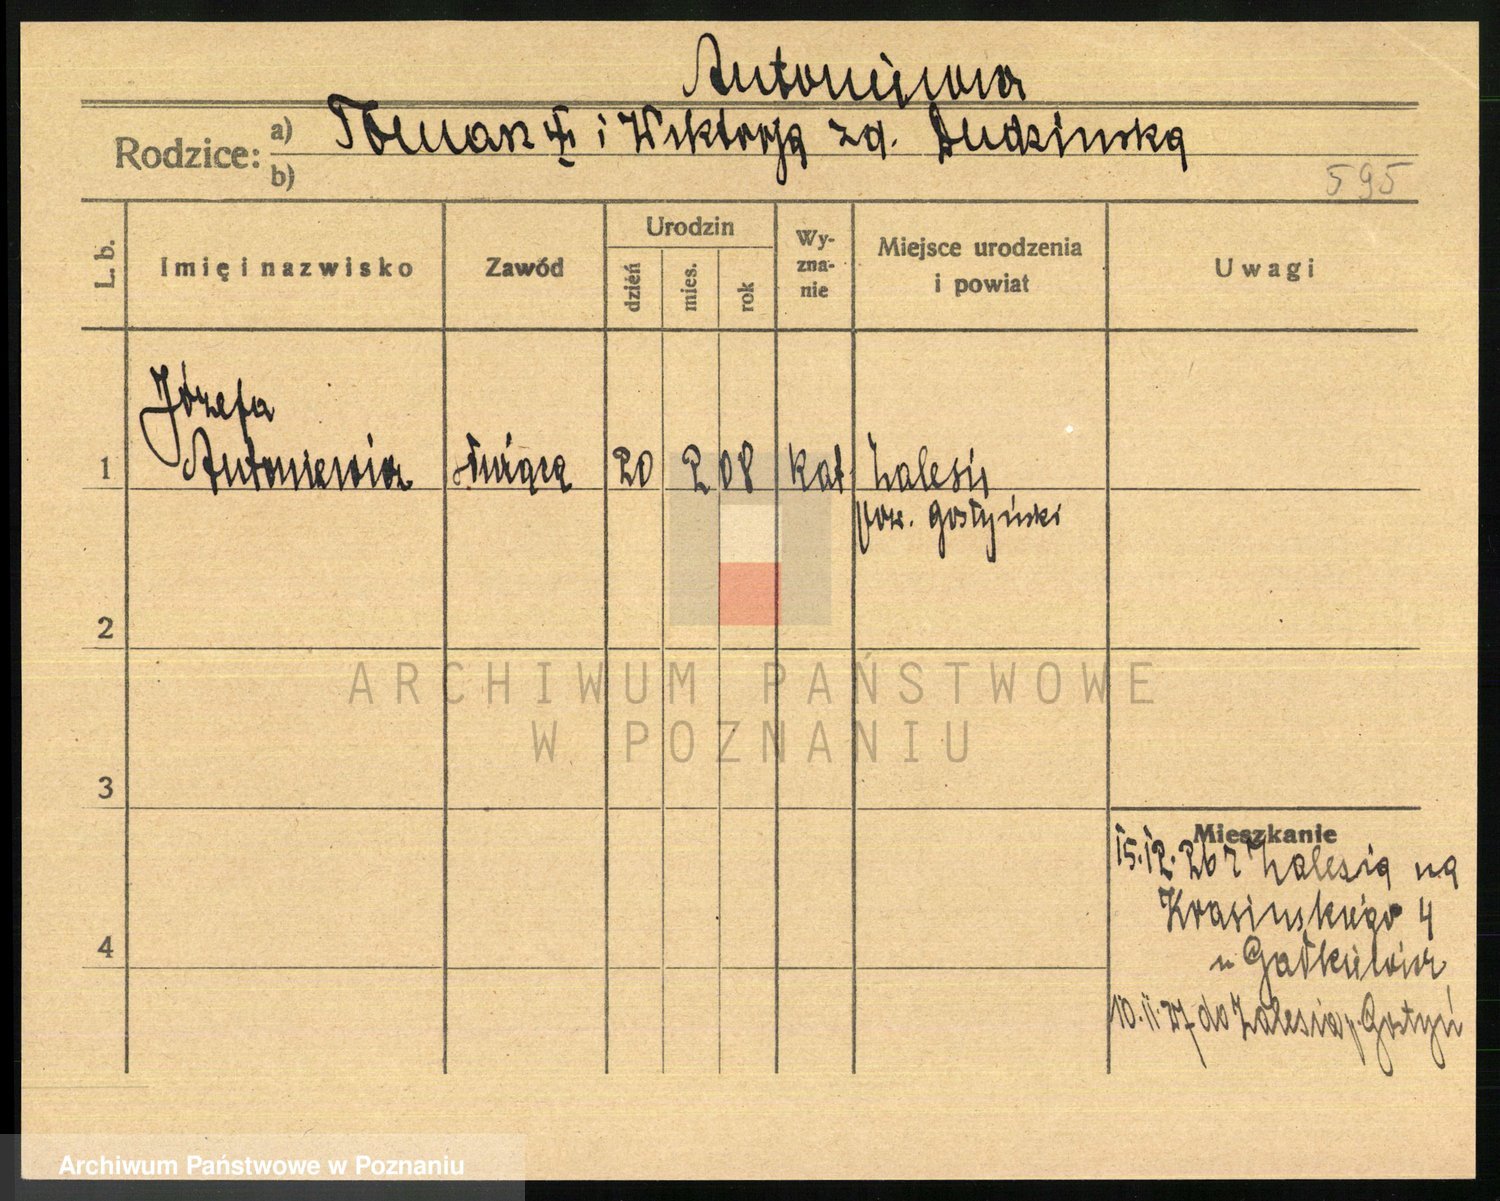 Antoniewicz
Rodzice: a) Tomasz i Wiktorja zd. Dudzińska
b)
595
L. b.
Imię i nazwisko
Zawód
Urodzin
dzień
mies.
rok
Wy-
zna-
nie
Miejsce urodzenia
i powiat
Uwagi
Józefa
1 Antoniewicz służąca 20 2 08 kat Zalesie
pow. gostyński
2
ARCHIWUM PAŃSTWOWE
W POZNANIU
3
Mieszkanie
15.12.26 z Zalesia na
Krasińskiego 4
4
u Gałkiewicz
10.11.27 do Zalesia p. Gostyń
Archiwum Państwowe w Poznaniu